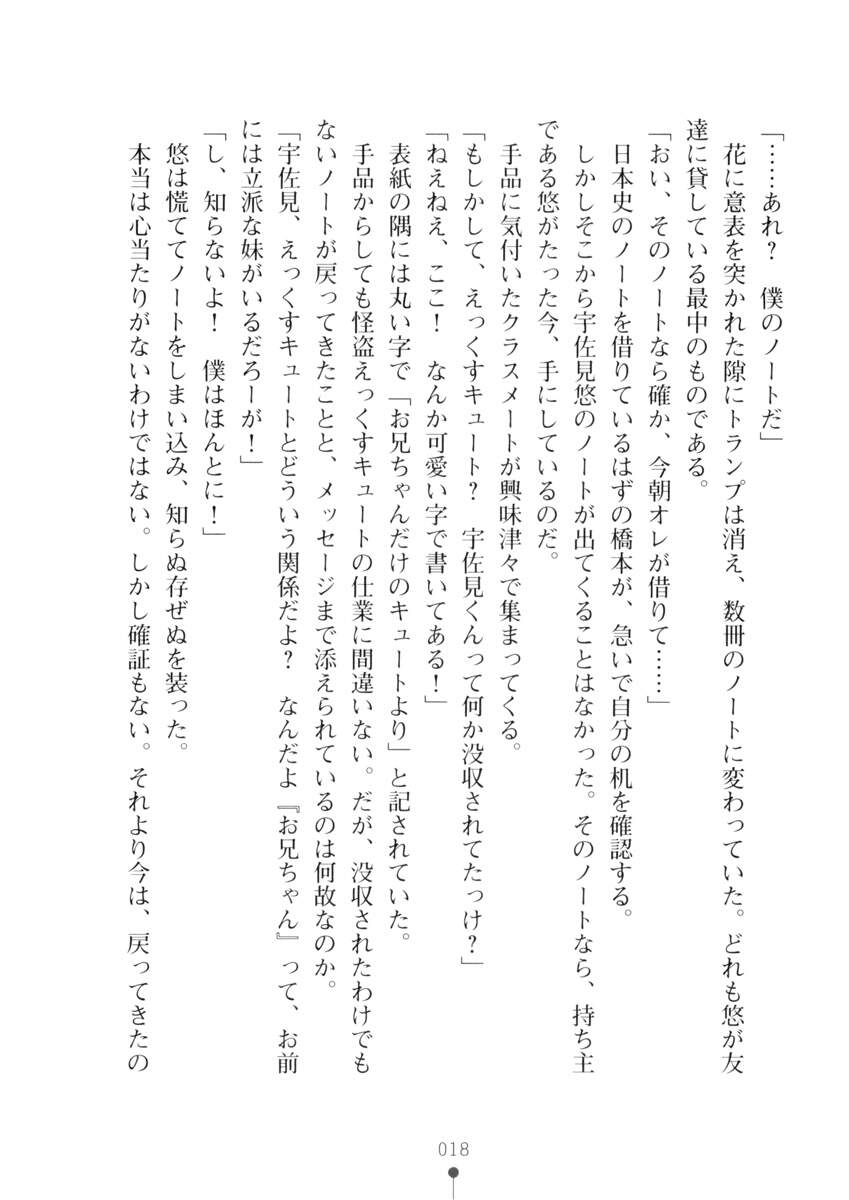 「……あれ？　僕のノートだ」
　花に意表を突かれた隙にトランプは消え、数冊のノートに変わっていた。どれも悠が友
達に貸している最中のものである。
「おい、そのノートなら確か、今朝オレが借りて……」
　日本史のノートを借りているはずの橋本が、急いで自分の机を確認する。
　しかしそこから宇佐見悠のノートが出てくることはなかった。そのノートなら、持ち主
である悠がたった今、手にしているのだ。
　手品に気付いたクラスメートが興味津々で集まってくる。
「もしかして、えっくすキュート？　宇佐見くんって何か没収されてたっけ？」
「ねえねえ、ここ！　なんか可愛い字で書いてある！」
　表紙の隅には丸い字で「お兄ちゃんだけのキュートより」と記されていた。
　手品からしても怪盗えっくすキュートの仕業に間違いない。だが、没収されたわけでも
ないノートが戻ってきたことと、メッセージまで添えられているのは何故なのか。
「宇佐見、えっくすキュートとどういう関係だよ？　なんだよ『お兄ちゃん』って、お前
には立派な妹がいるだろーが！」
「し、知らないよ！　僕はほんとに！」
　悠は慌ててノートをしまい込み、知らぬ存ぜぬを装った。
　本当は心当たりがないわけではない。しかし確証もない。それより今は、戻ってきたの
018